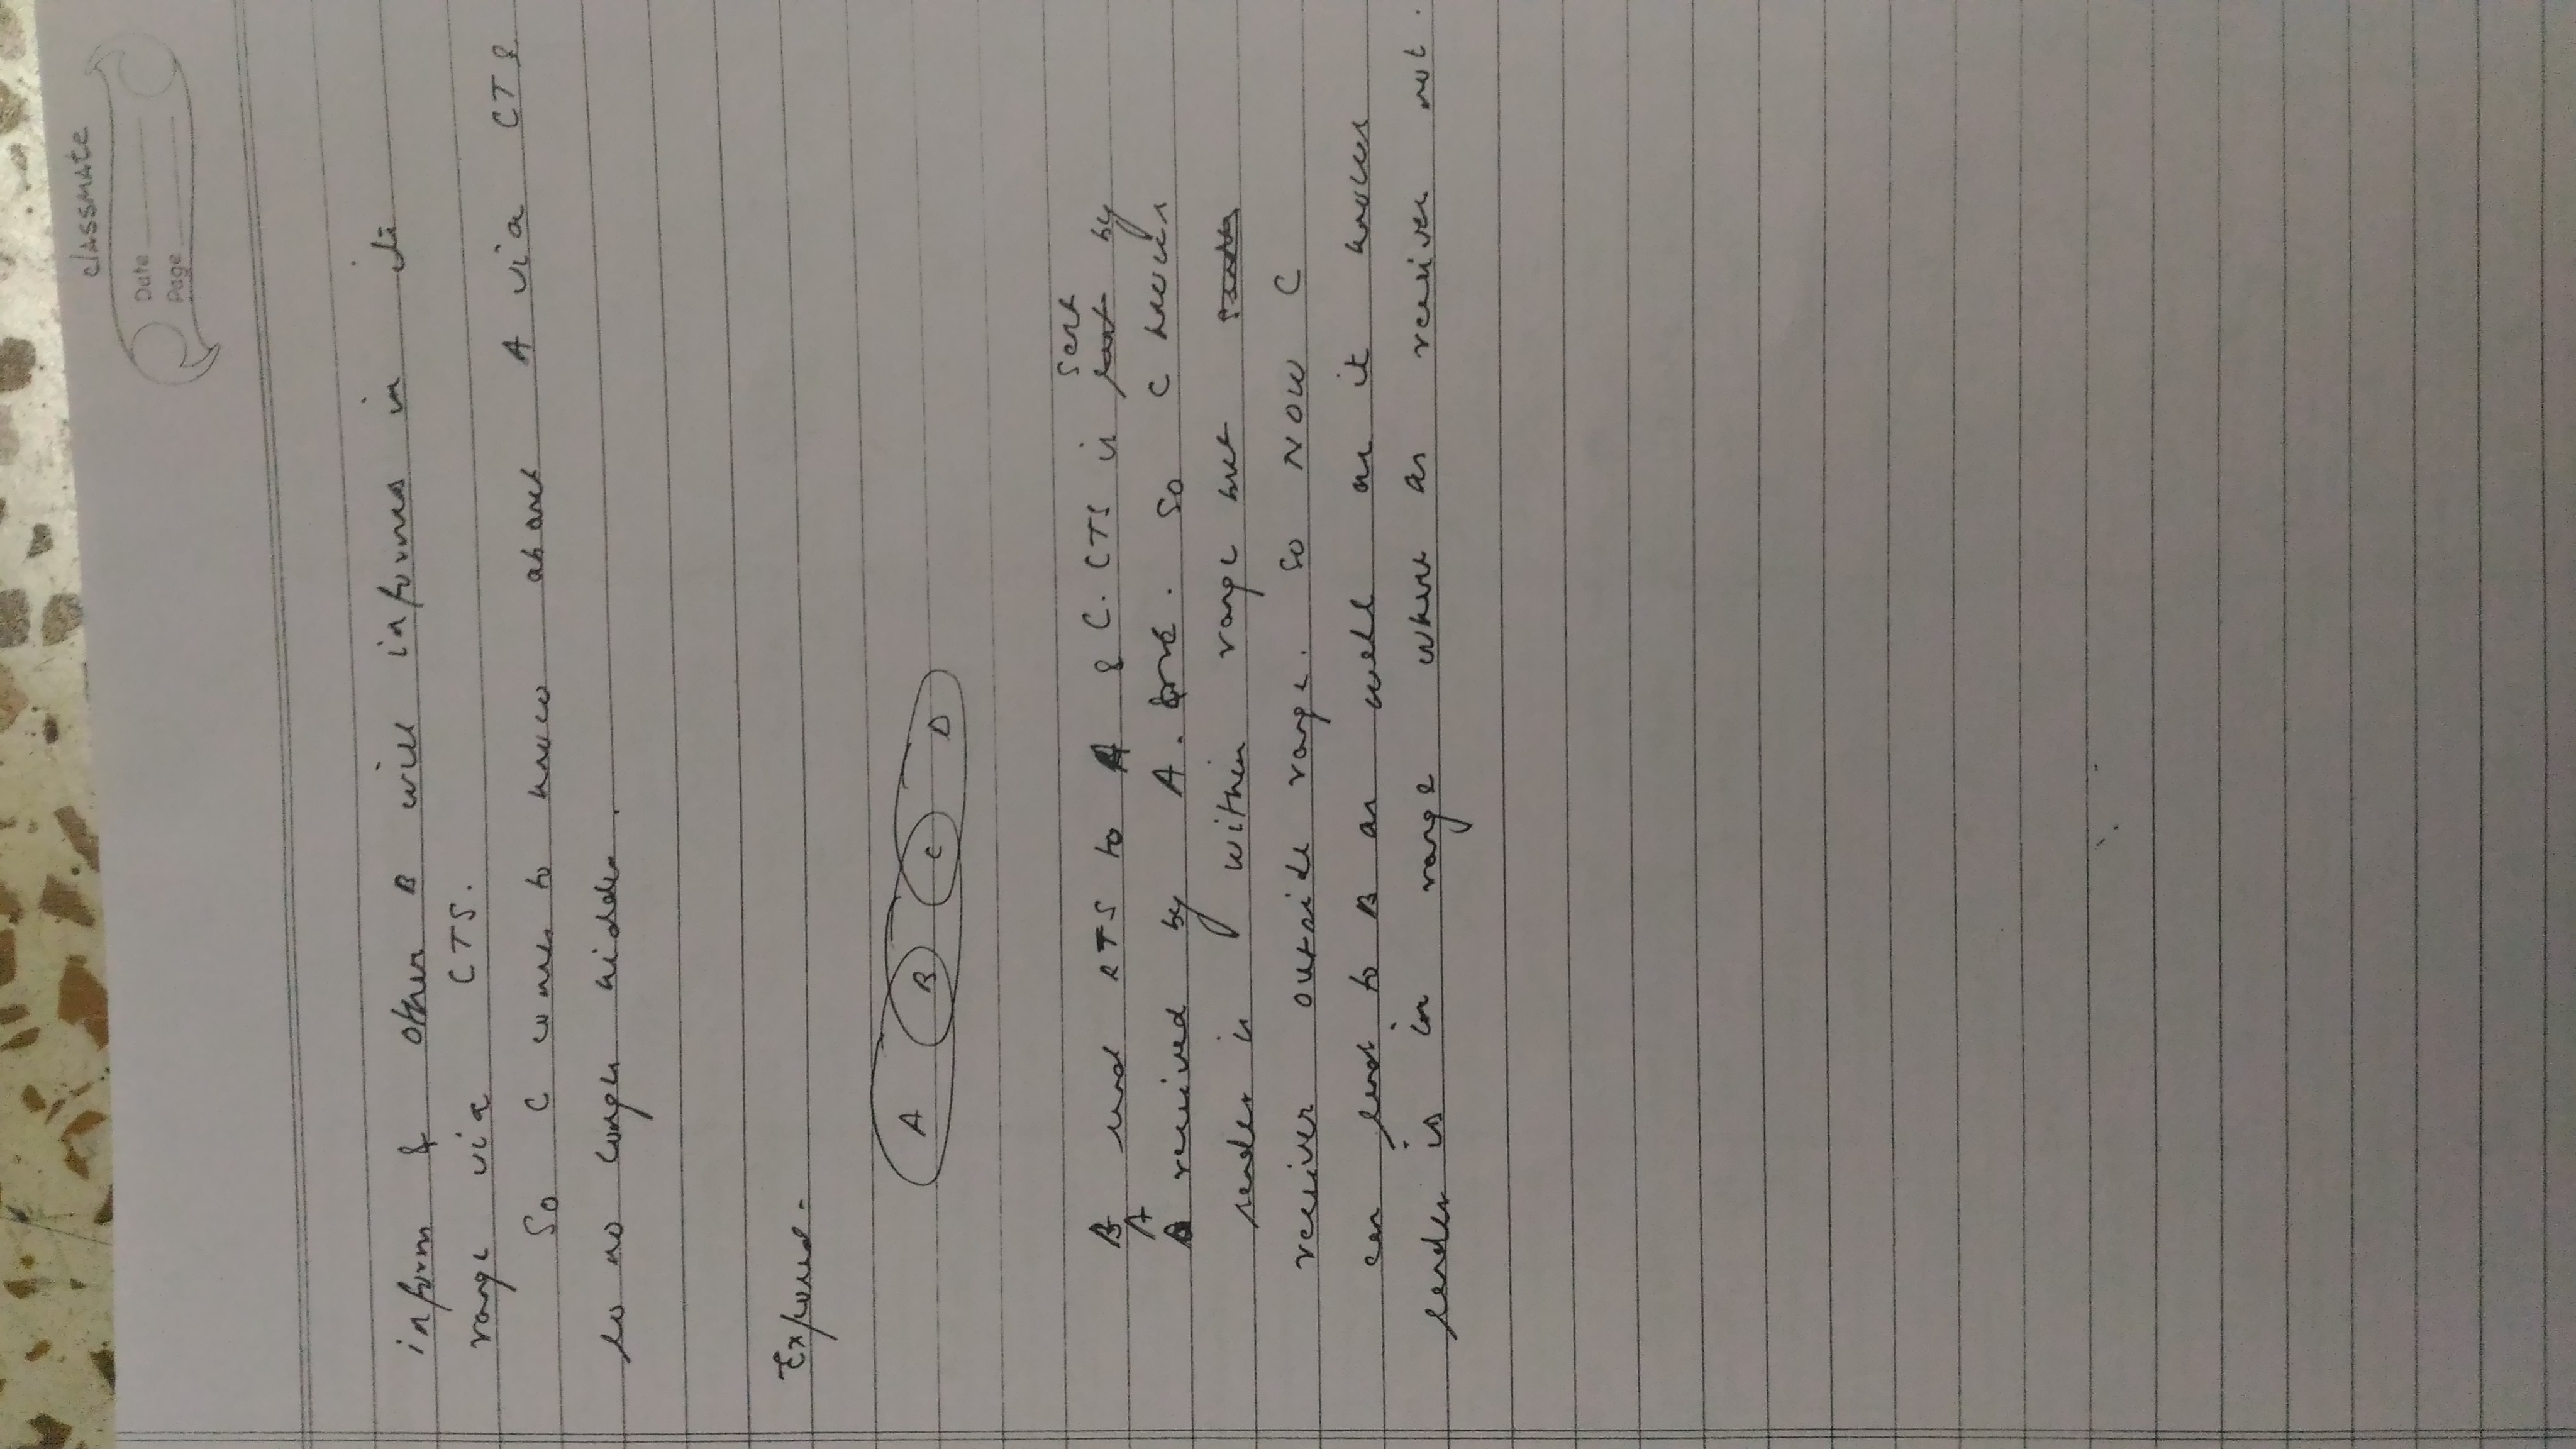 classmate
Date
Page
inform & other B will informed in its
range via CTS.
So C comes to know about A via CTS
so no longer hidden.
Exposed -
A B C D
sent
B send RTS to A & C. CTS is by
A
received by A. So C knows
sender is within range but
receiver outside range. So NOW C
can send to B as well as it knows
sender is in range where as receiver not.